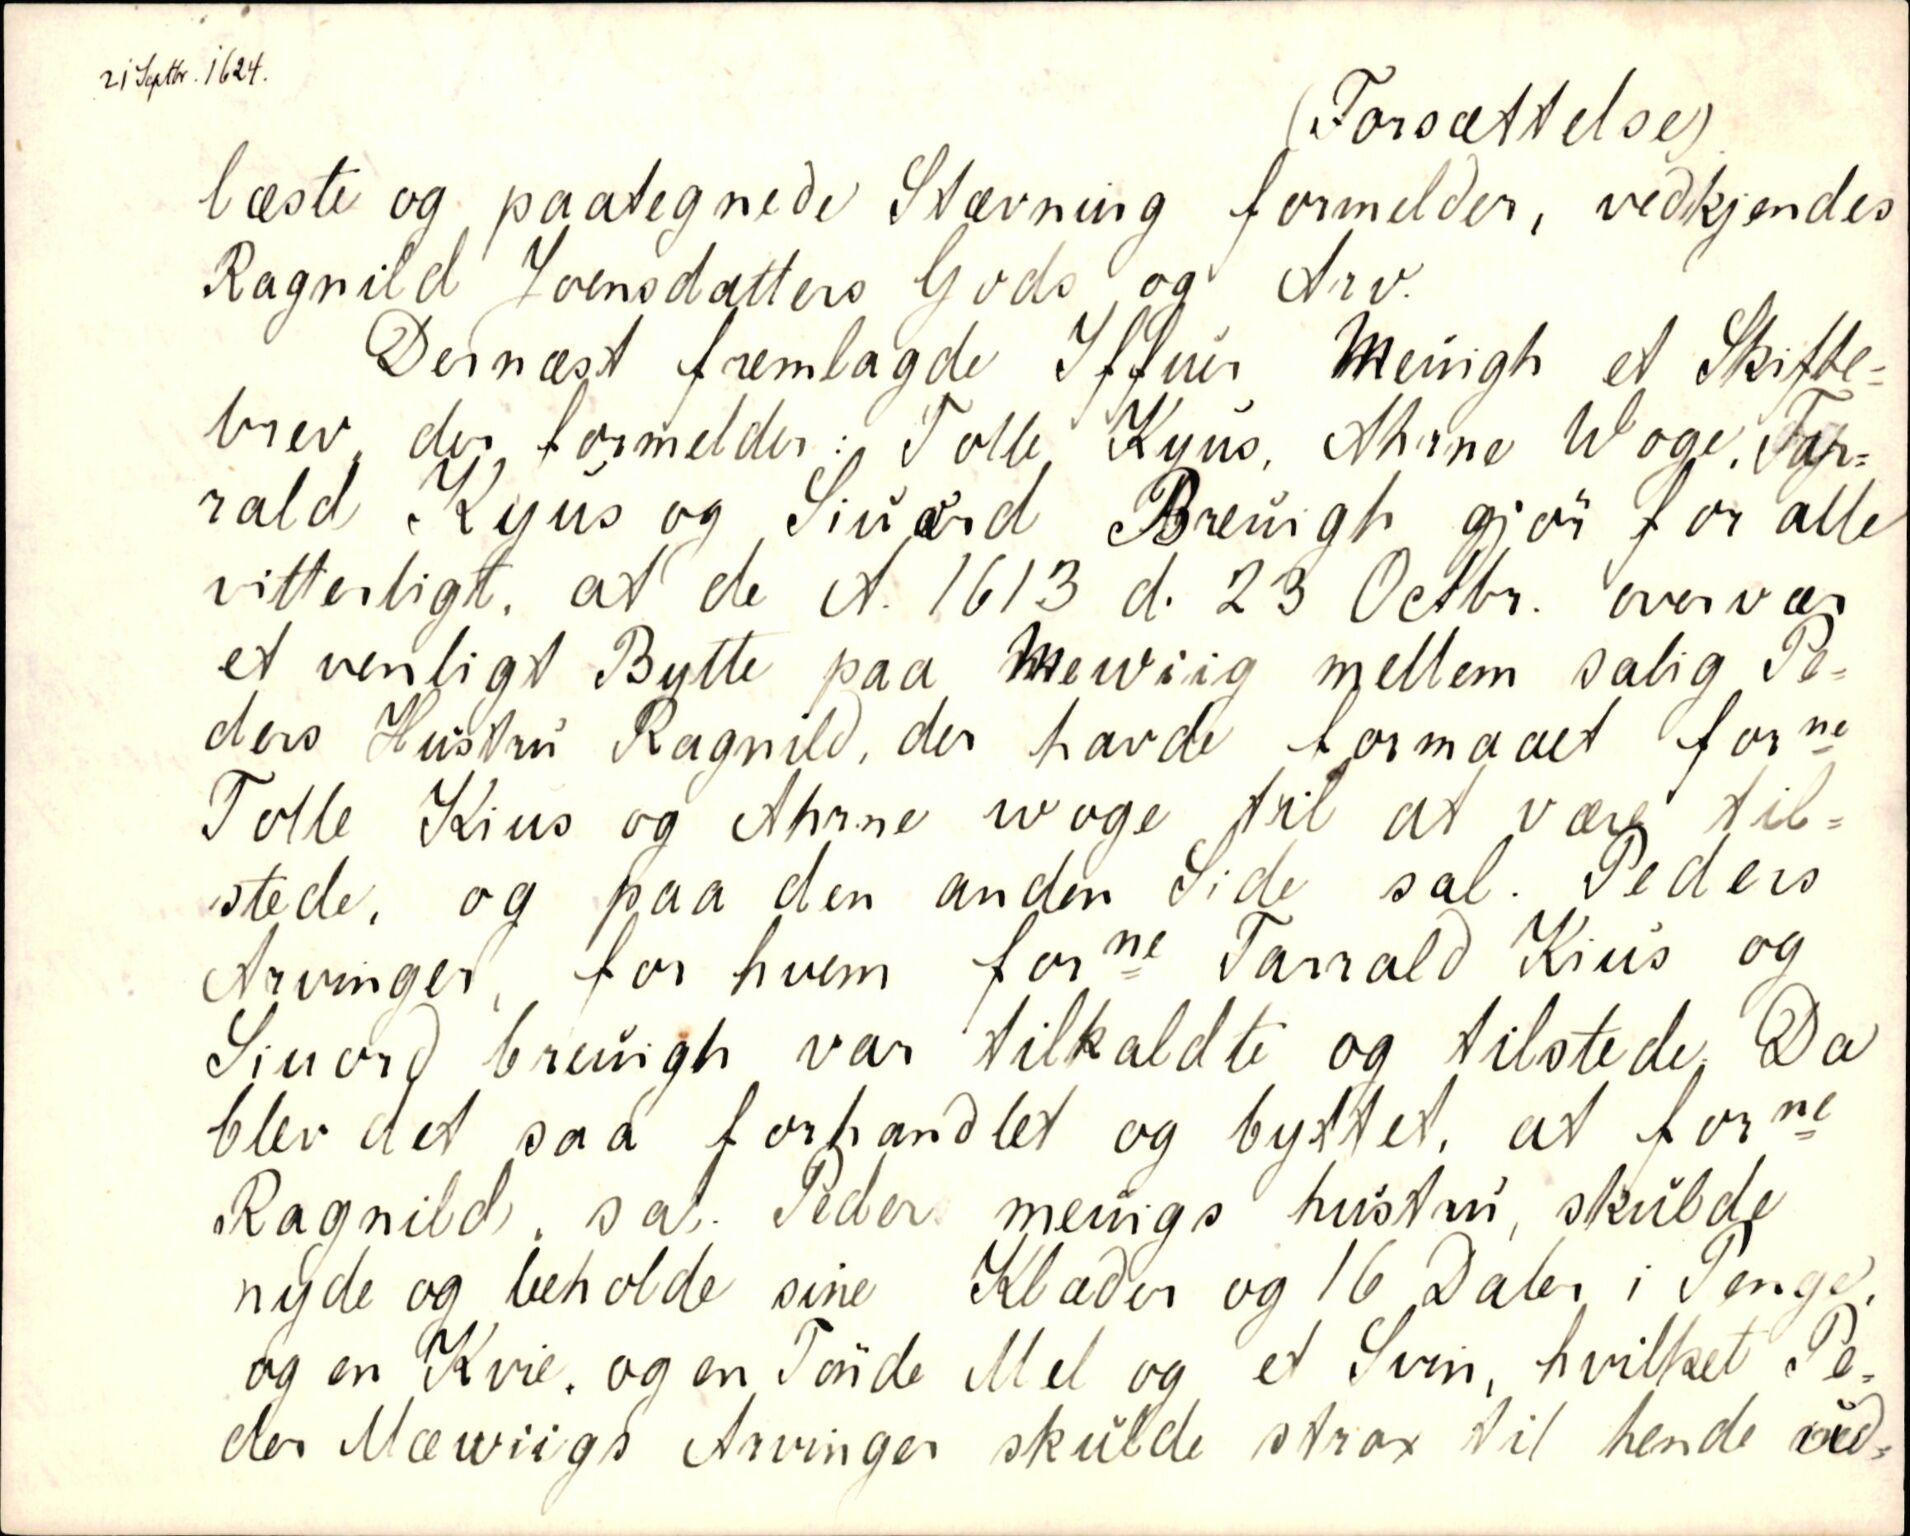 21 Septbr. 1624.
(Forsættelse)
læste og paategnede Stævning formelder, vedkjendes
Ragnild Joensdatters Gods og Arv.
Dernæst fremlagde Iffuer Meuigh et Skifte=
brev der formelder: Tolle Kyus, Ahrne Woge, Tar=
rald Kyus og Siuord Breuigh gjör for alle
vitterligt, at de A. 1613 d. 23 Octbr. overvær
et venligt Bytte paa Mewiig mellem salig Pe=
ders Hustru Ragnild, der havde formaaet forne
Tolle Kius og Ahrne woge til at være til=
stede, og paa den anden Side sal. Peders
Arvinger, for hvem forne Tarrald Kius og
Siuord breuigh var tilkaldte og tilstede. Da
blev det saa forhandlet og byttet, at forne
Ragnild, sal. Peder meuigs hustru, skulde
nyde og beholde sine Klæder og 16 Daler i Penge,
og en Kvie, og en Tönde Mel og et Svin, hvilket Pe=
der Mæwiigs Arvinger skulde strax til hende ud=